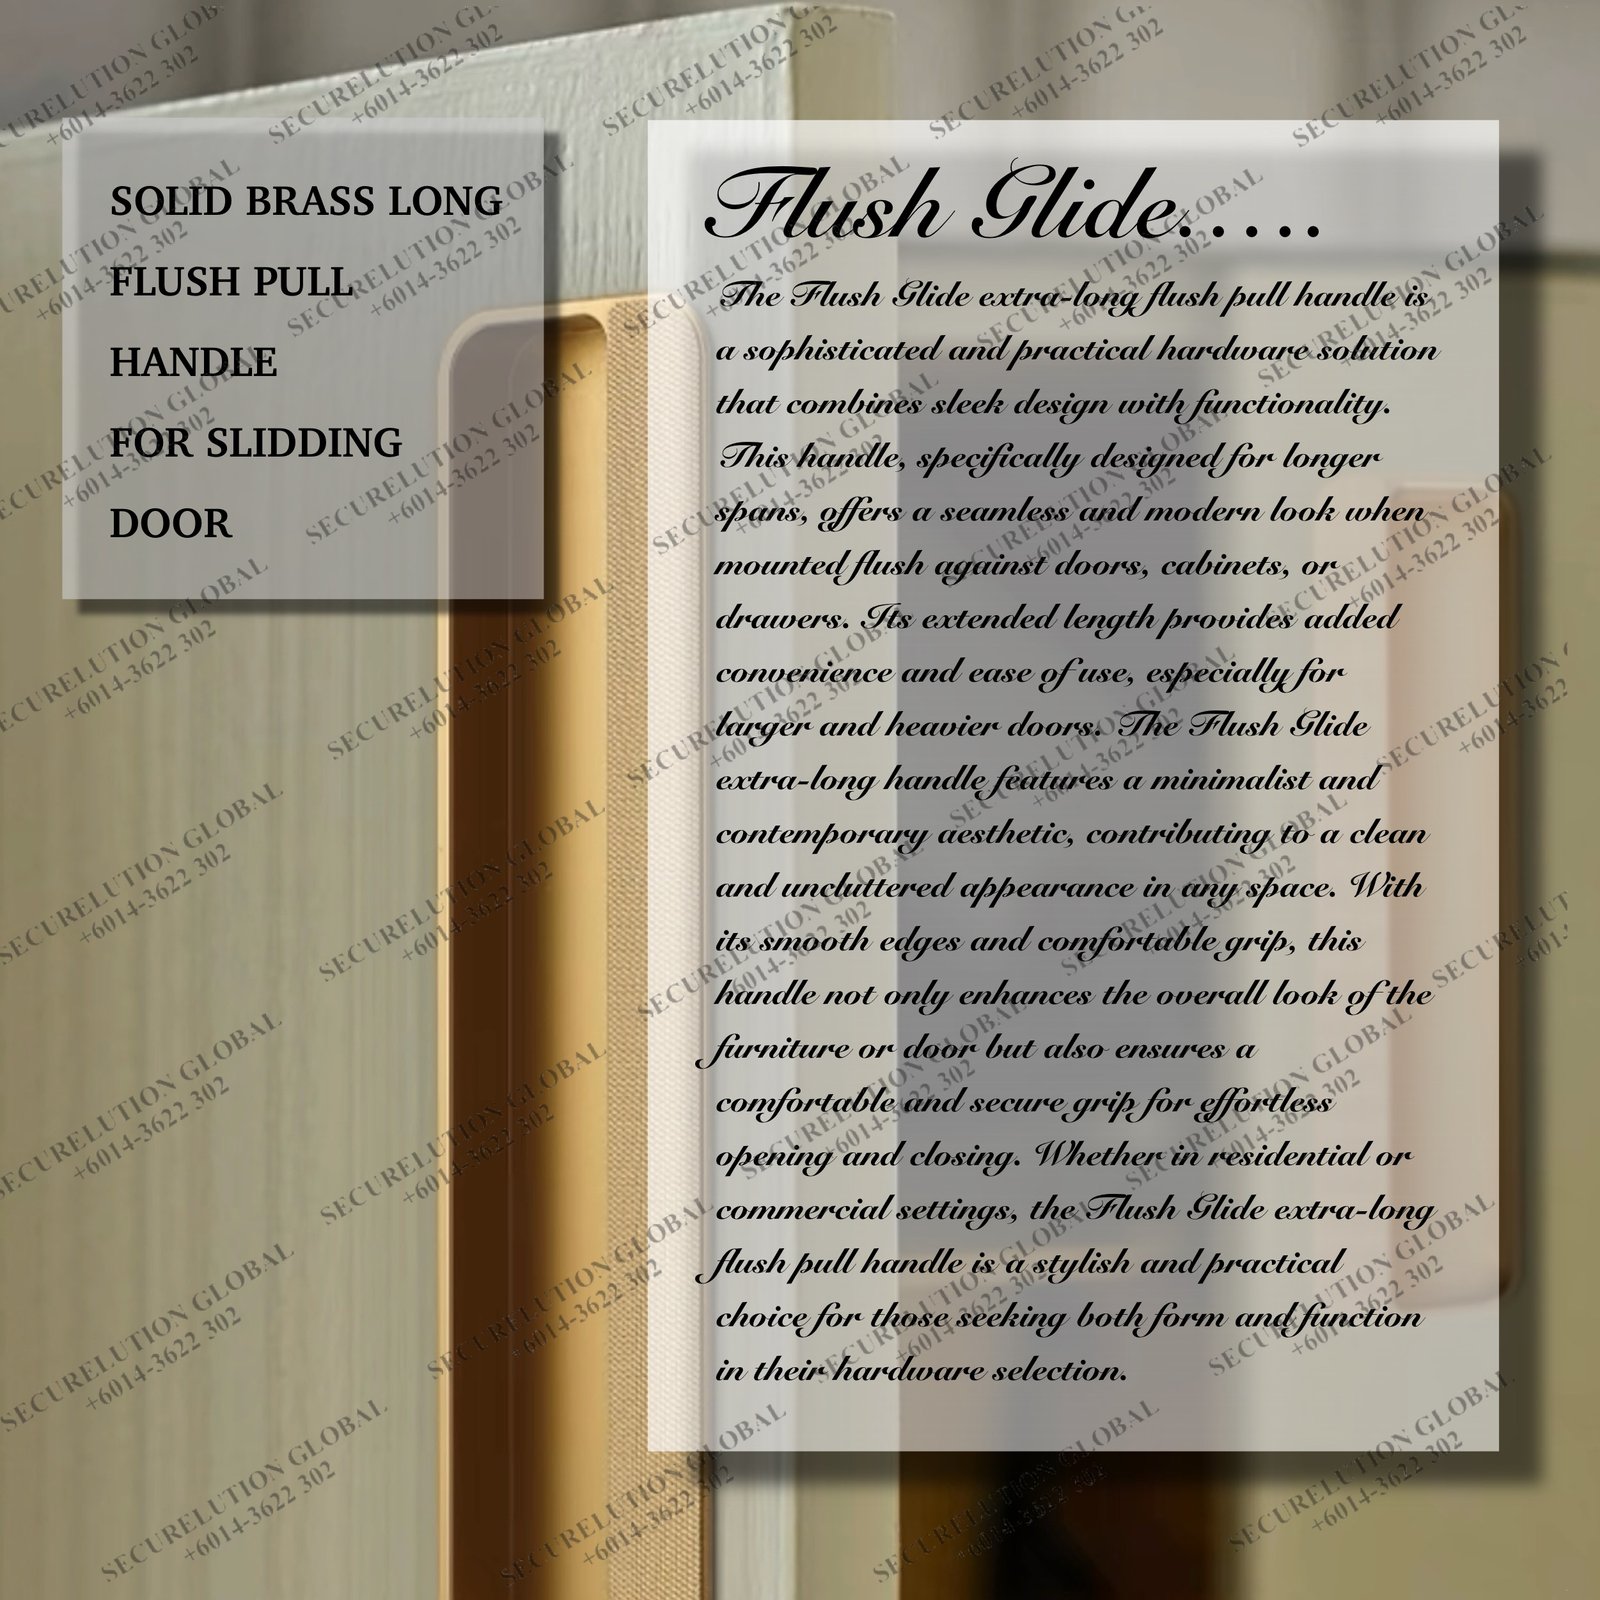 SOLID BRASS LONG
FLUSH PULL
HANDLE
FOR SLIDDING
DOOR
Flush Glide.....
The Flush Glide extra-long flush pull handle is
a sophisticated and practical hardware solution
that combines sleek design with functionality.
This handle, specifically designed for longer
spans, offers a seamless and modern look when
mounted flush against doors, cabinets, or
drawers. Its extended length provides added
convenience and ease of use, especially for
larger and heavier doors. The Flush Glide
extra-long handle features a minimalist and
contemporary aesthetic, contributing to a clean
and uncluttered appearance in any space. With
its smooth edges and comfortable grip, this
handle not only enhances the overall look of the
furniture or door but also ensures a
comfortable and secure grip for effortless
opening and closing. Whether in residential or
commercial settings, the Flush Glide extra-long
flush pull handle is a stylish and practical
choice for those seeking both form and function
in their hardware selection.
SECURELUTION GLOBAL
+6014-3622 302